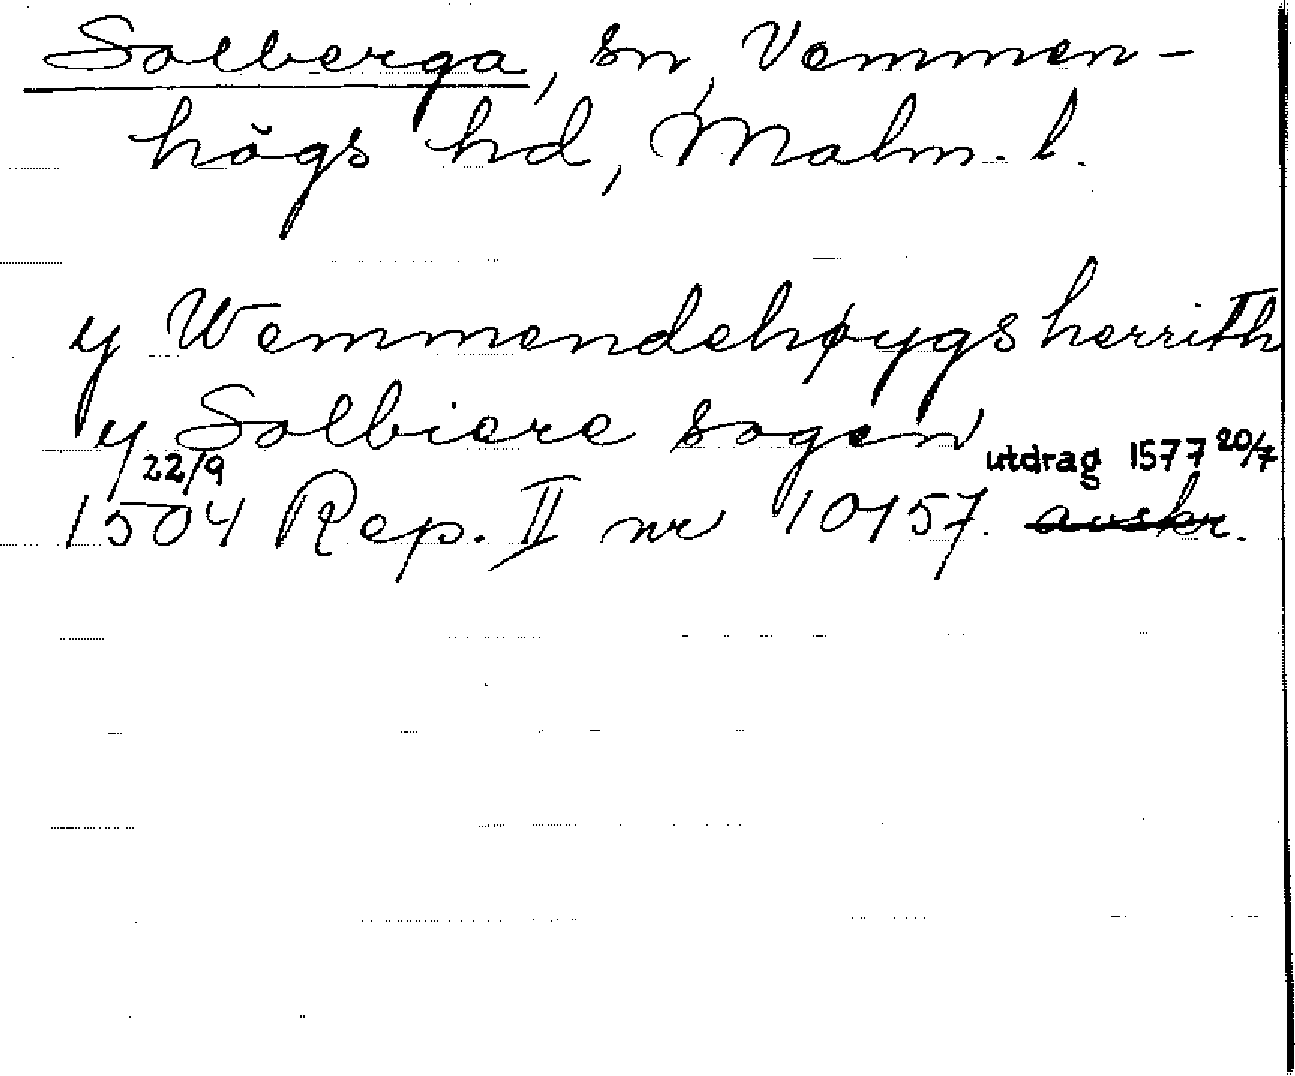 Solberga, sn, Vemmen-
högs hd, Malm. l.
y Wemmendehøygsherrith
y Solbiere sogen
22/9 utdrag 1577 20/7
1504 Rep. II nr 10157. avskr.